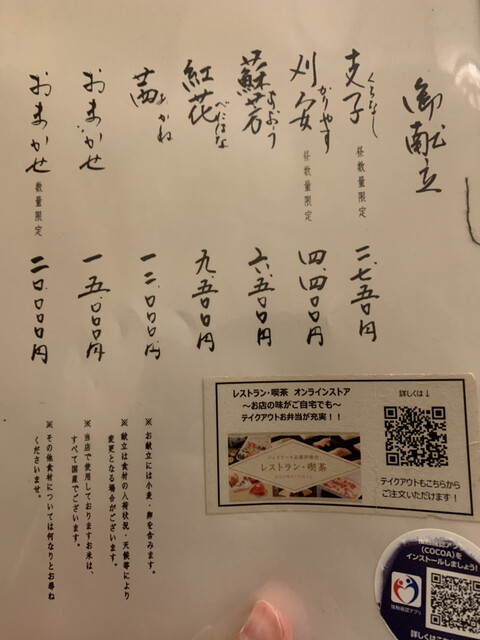 御献立
支子 くちなし 昼数量限定 二、七五〇円
刈安 かりやす 昼数量限定 四、四〇〇円
蘇芳 すおう 六、五〇〇円
紅花 べにばな 九、五〇〇円
茜 あかね 一二、〇〇〇円
おまかせ 一五、〇〇〇円
おまかせ 数量限定 二〇、〇〇〇円
※お献立には小麦・卵を含みます。
※献立は食材の入荷状況・天候等により
変更となる場合がございます。
※当店で使用しておりますお米は、
すべて国産でございます。
※その他食材については何なりとお尋ね
くださいませ。
レストラン・喫茶 オンラインストア
～お店の味がご自宅でも～
テイクアウトお弁当が充実！！
レストラン・喫茶
詳しくは↓
テイクアウトもこちらから
ご注文いただけます！
(COCOA)を
インストールしましょう！
接触確認アプリ